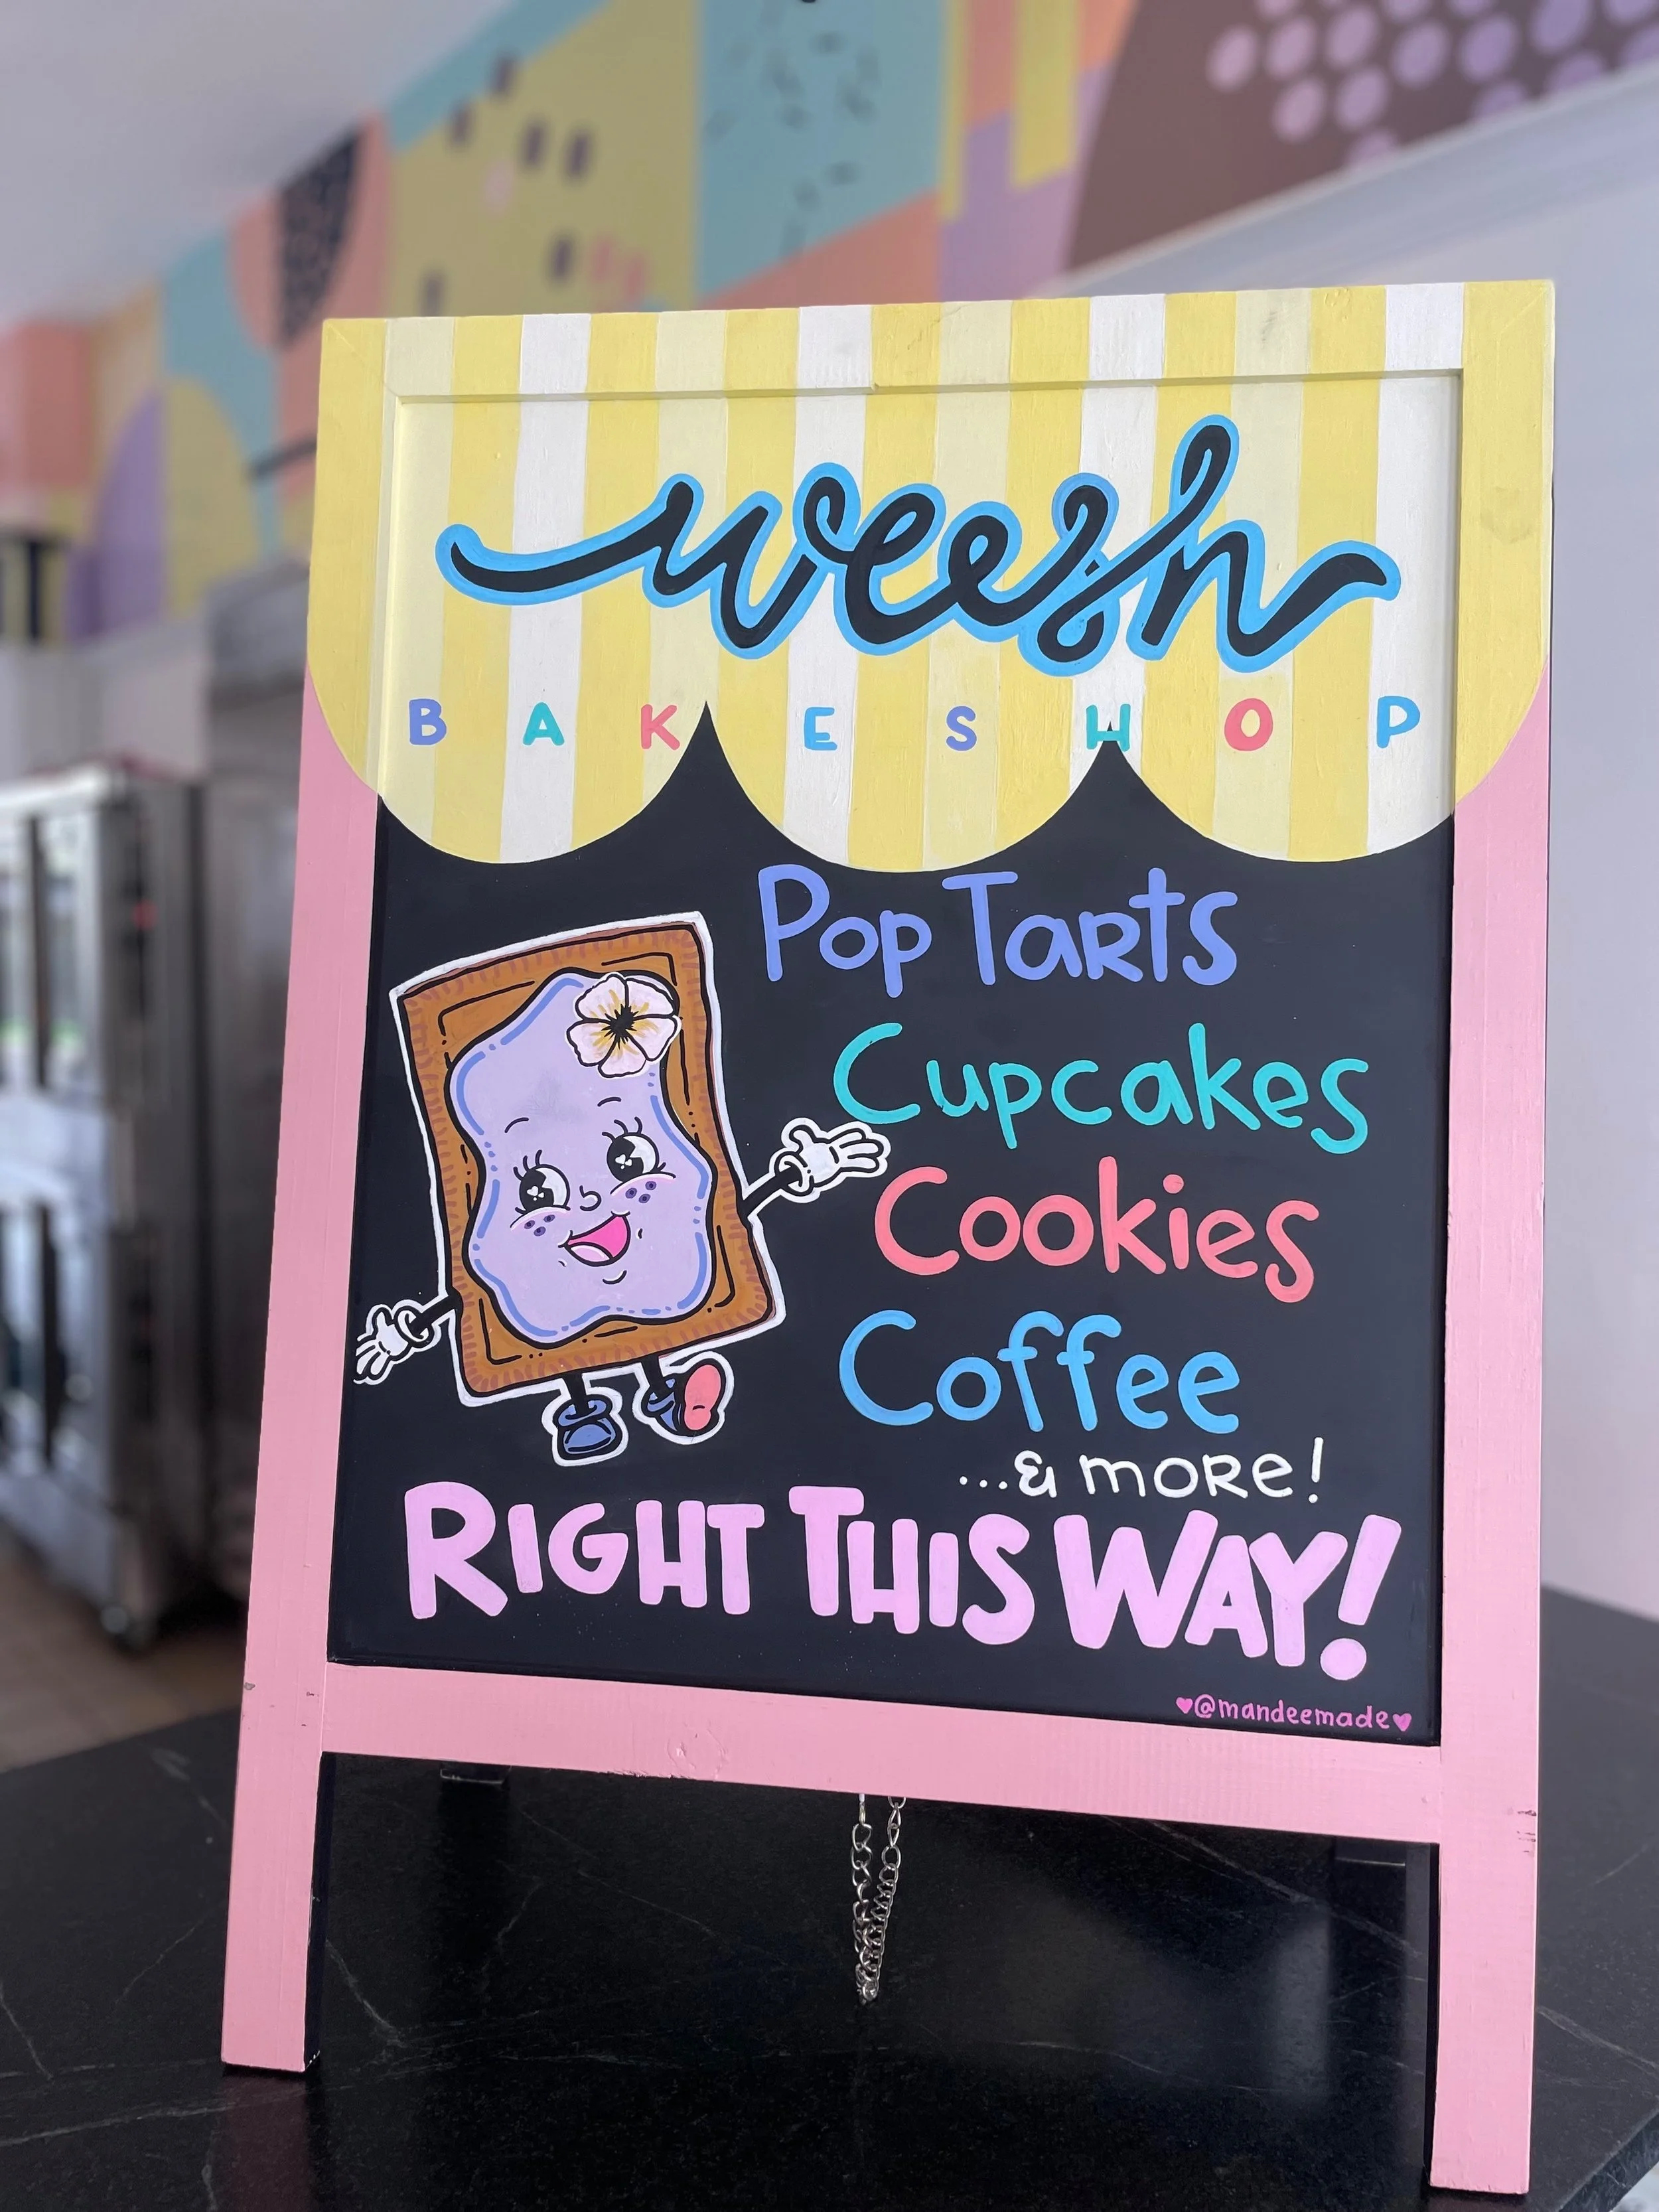 weesh
BAKESHOP
Pop Tarts
Cupcakes
Cookies
Coffee
...& more!
RIGHT THIS WAY!
♥@mandeemade♥